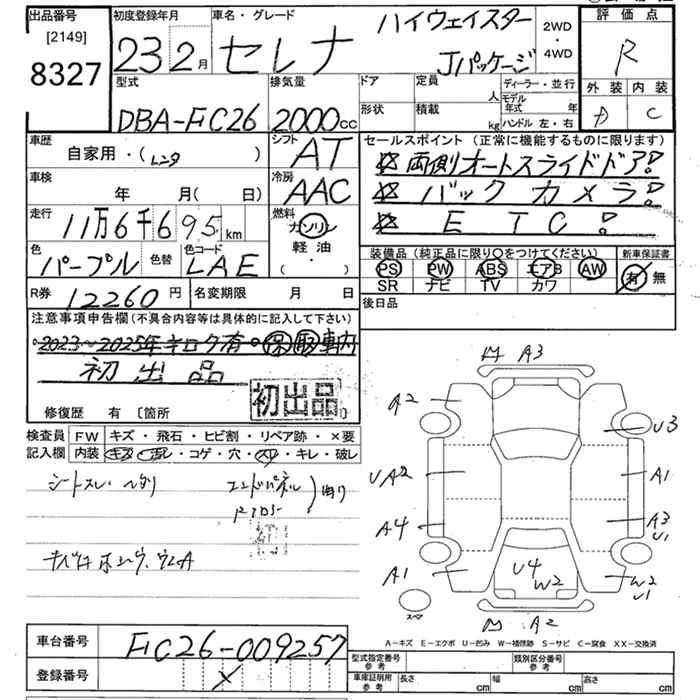 出品番号
[2149]
8327
初度登録年月
23年2月
車名・グレード
セレナ
ハイウェイスター
Jパッケージ
2WD
・
4WD
評価点
R
外装 内装
D C
型式
DBA-FC26
排気量
2000cc
ドア
形状
定員
人
積載
kg
ディーラー・並行
モデル年式 年
ハンドル 左・右
車歴
自家用・(レンタ )
シフト
AT
車検
年 月( 日)
冷房
AAC
走行
11万6千695km
燃料
ガソリン
軽油
( ・ )
色
パープル
色替
色コード
LAE
R券 12260円
名変期限 月 日
セールスポイント(正常に機能するものに限ります)
両側オートスライドドア!
バックカメラ!
ETC!
装備品(純正品に限り○をつけてください)
新車保証書
PS PW ABS エアB AW
SR ナビ TV カワ
有・無
後日品
注意事項申告欄(不具合内容等は具体的に記入して下さい)
2023~2025年キロク有・保取車内
初出品
初出品
修復歴 有 [箇所 ]
検査員
記入欄
FW キズ・飛石・ヒビ割・リペア跡・×要
内装 キズ・汚レ・コゲ・穴・スレ・キレ・破レ
シートスレ・ヘタリ
エンドパネル
曲り
A3
A2
U3
UA2
A1
A4
A3
U1
A1
U4
W2
W2
U1
A2
スペア
A-キズ E-エクボ U-凹み W-補修跡 S-サビ C-腐食 XX-交換済
車台番号
FC26-009257
登録番号
型式指定番号
参考
類別区分番号
参考
車庫証明用
参考
長さ cm 幅 cm 高さ cm